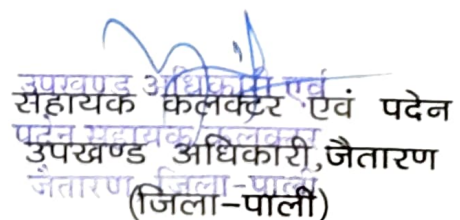 उपखण्ड अधिकारी एवं
सहायक कलक्टर एवं पदेन
पदेन सहायक कलक्टर
उपखण्ड अधिकारी,जैतारण
जैतारण जिला-पाली
(जिला-पाली)